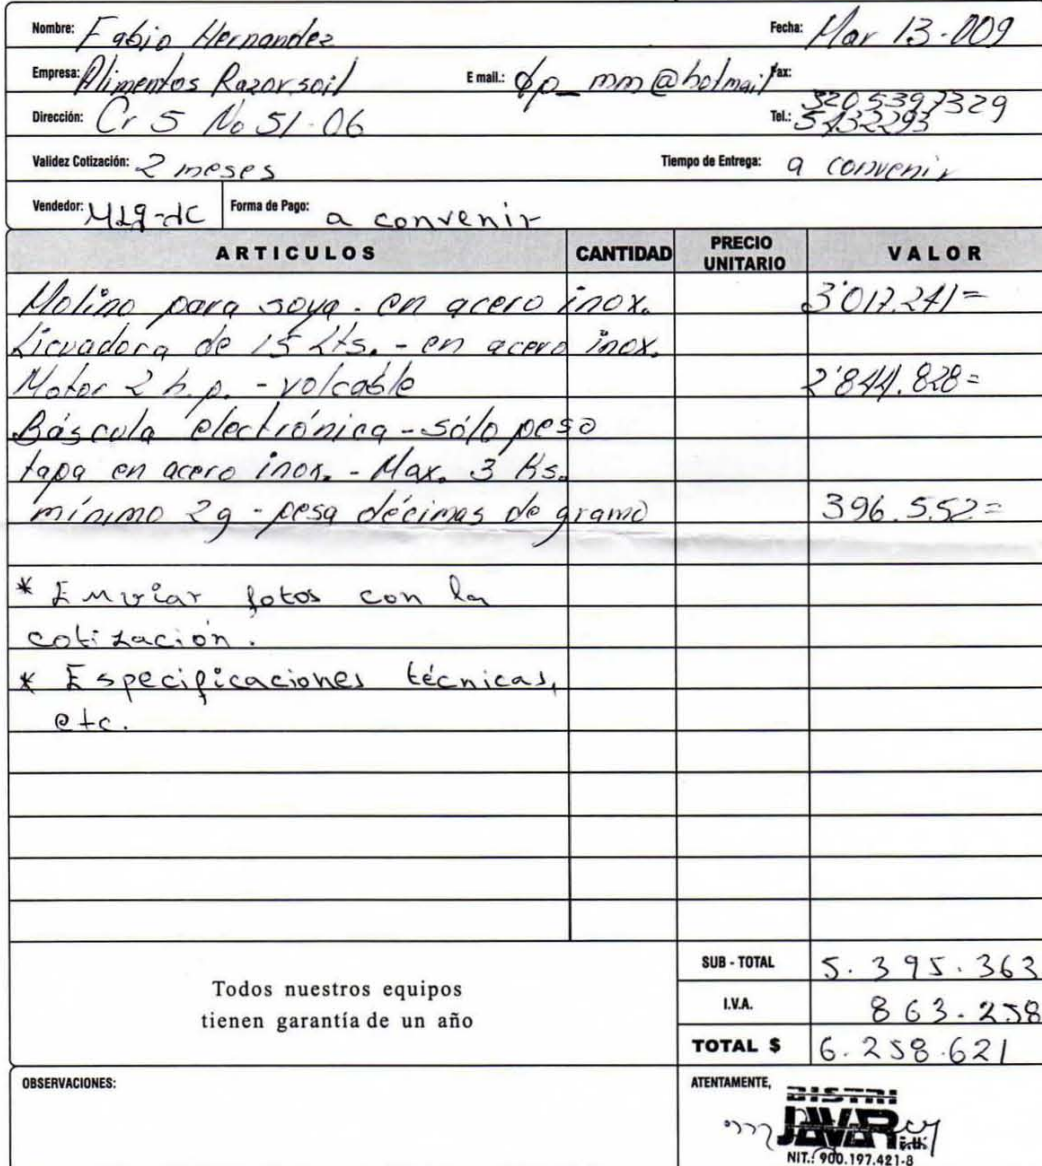 Nombre: Fabio Hernandez Fecha: Mar 13-009
Empresa: Alimentos Razorsoil E mail.: dp_mm@hotmail Fax:
3205397329
Dirección: Cr 5 No 51-06 Tel.: 5432293
Validez Cotización: 2 meses Tiempo de Entrega: a convenir
Vendedor: Forma de Pago: a convenir
ARTICULOS CANTIDAD PRECIO UNITARIO VALOR
Molino para soya - en acero inox. 3'017.241=
Licuadora de 15 Lts. - en acero inox.
Motor 2 h.p. - volcable 2'844.828=
Báscula electrónica - sólo peso
tapa en acero inox. - Max. 3 Ks.
mínimo 2g - pesa décimas de gramo 396.552=
* Enviar fotos con la
cotización.
* Especificaciones técnicas,
etc.
Todos nuestros equipos
tienen garantía de un año
SUB - TOTAL 5.395.363
I.V.A. 863.258
TOTAL $ 6.258.621
OBSERVACIONES: ATENTAMENTE,
DISTRI
JAVAR
NIT.: 900.197.421-8